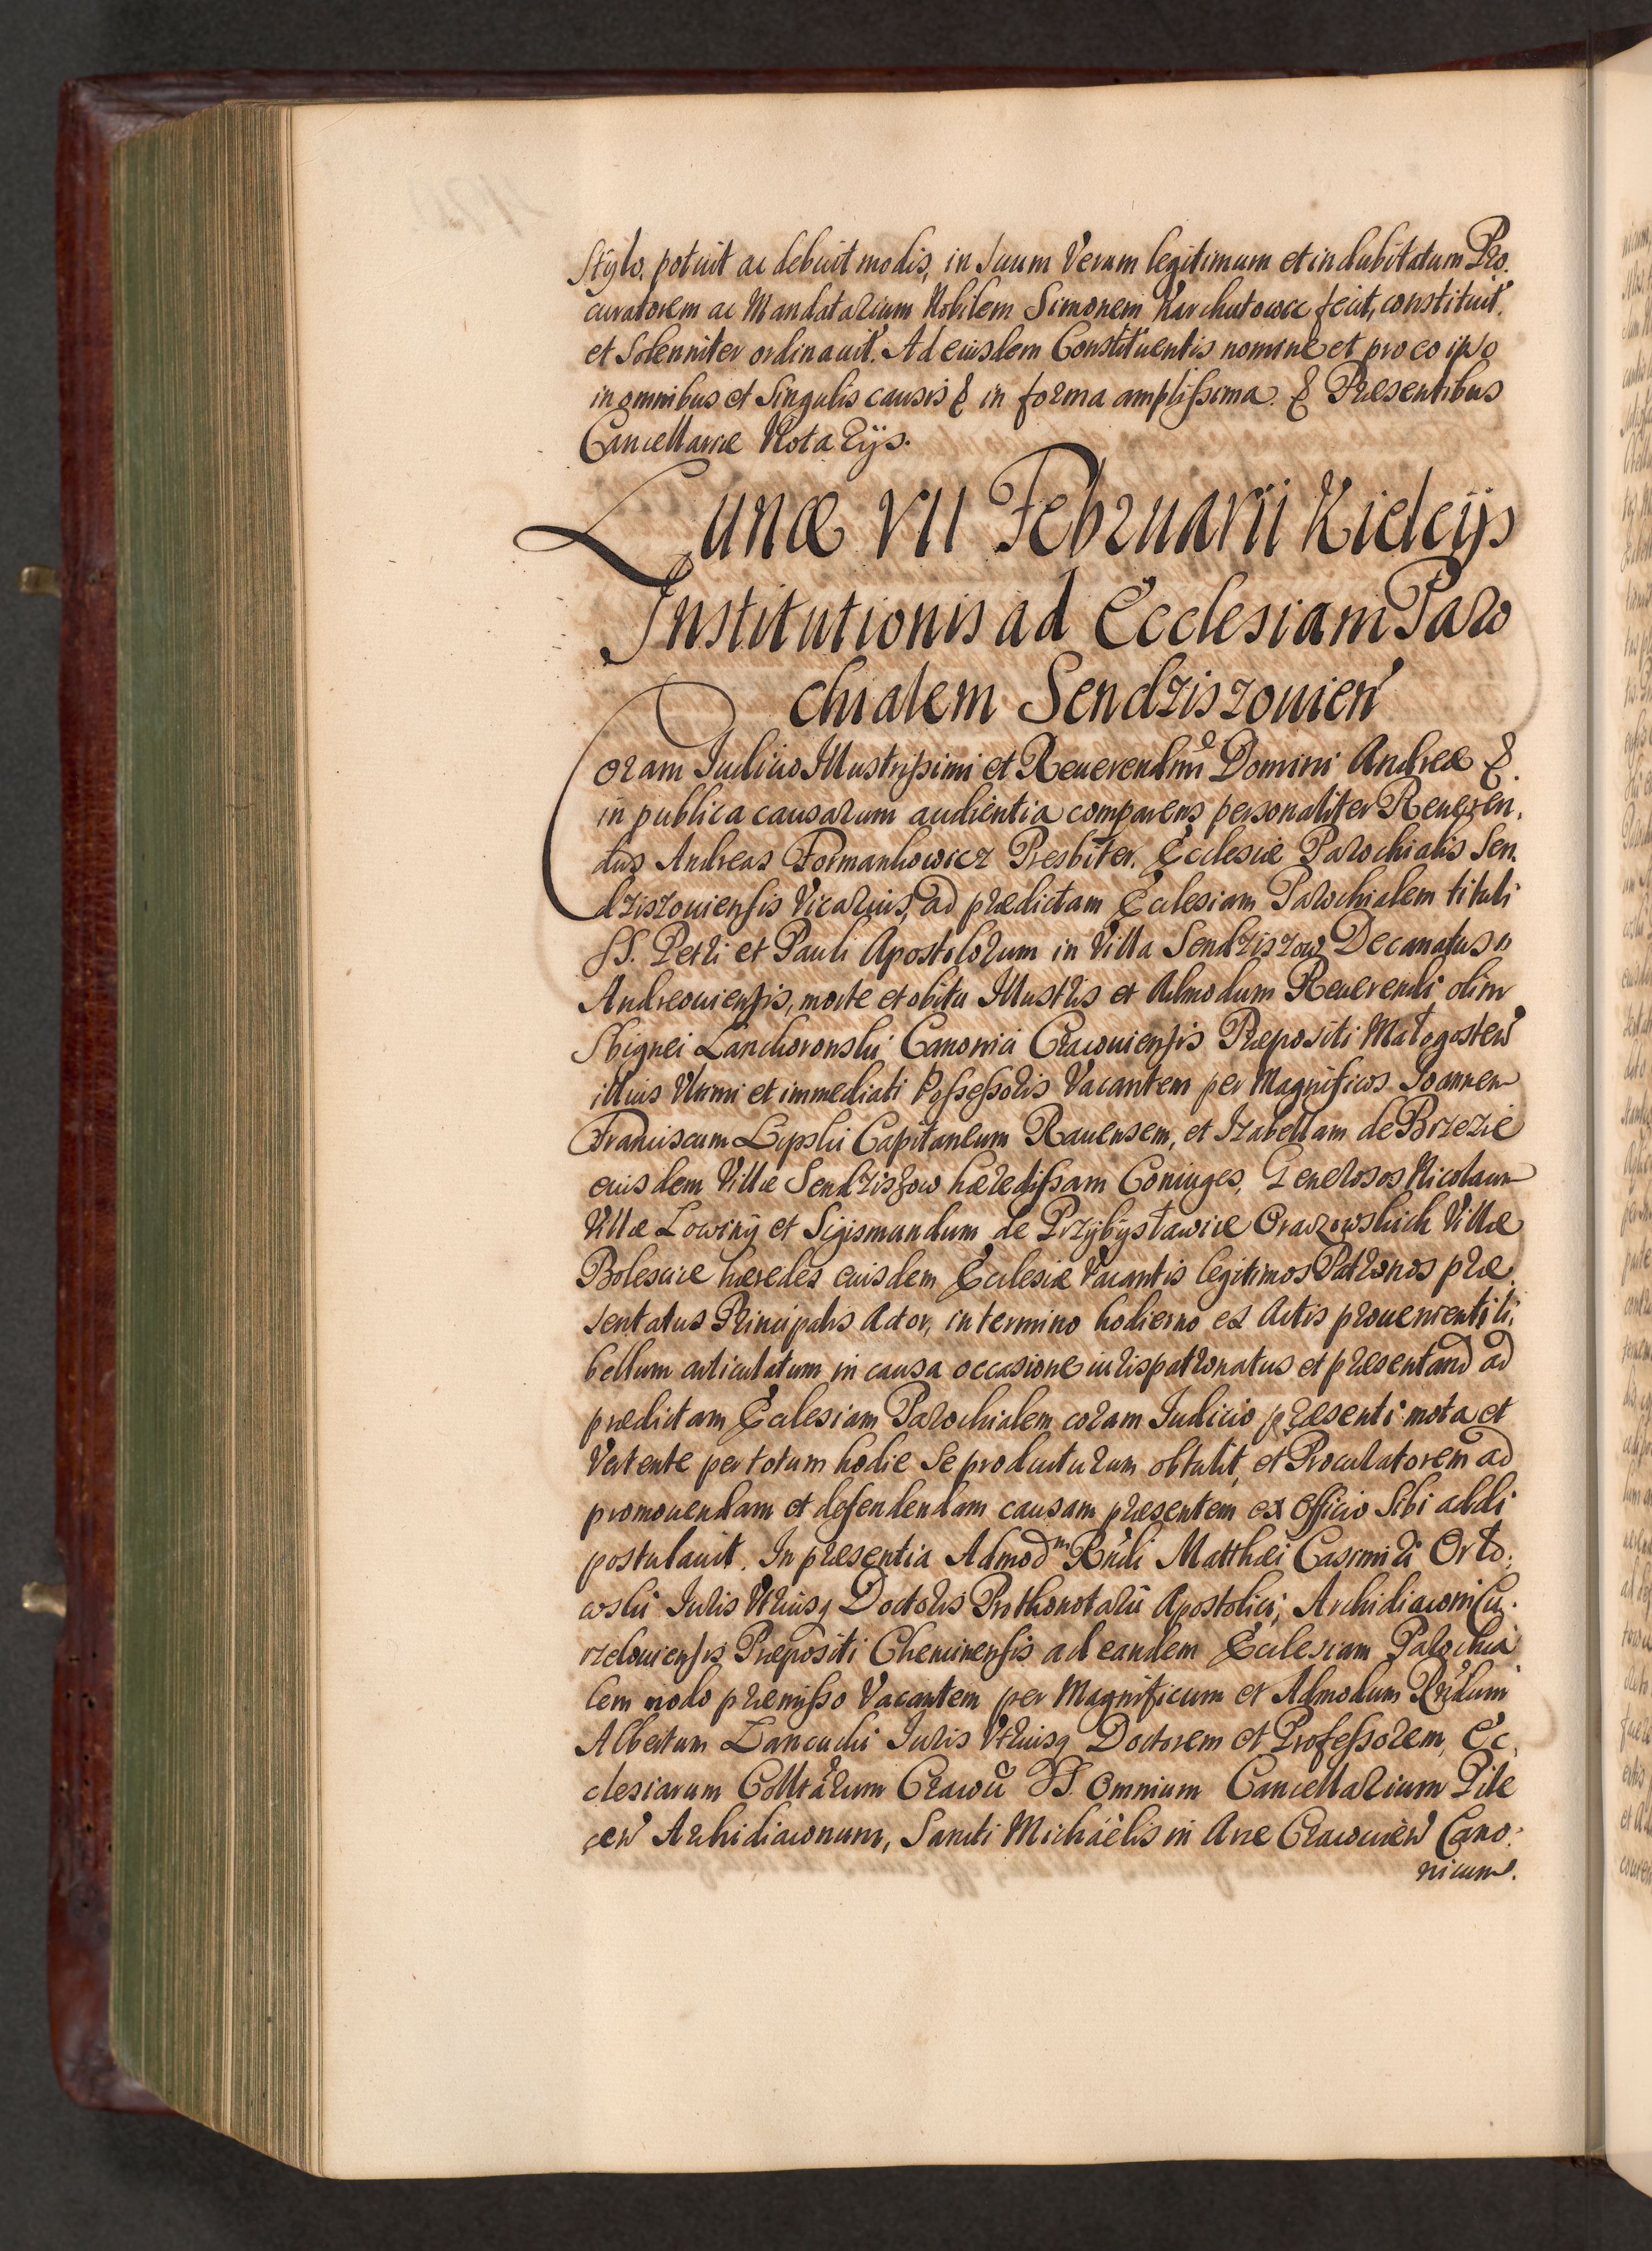 Stylo, potuit ac debuit modis, in Suum Verum legitimum et indubitatum Pro.
curatorem ac Mandatarium Nobilem Simonem Karchutowic fecit, constituit,
et Solenniter ordinauit. Ad eiusdem Constituentis nomine et pro eo ipso
in omnibus et Singulis causis & in forma amplissima. & Præsentibus
Cancellariæ Notarijs.
Lunæ VII Februarii Kielcijs
Institutionis ad Ecclesiam Paro
chialem Sendziszouien
Coram Iudicio Illustrissimi et Reuerendmi Domini Andreæ &.
in publica causarum audientia comparens personaliter Reueren,
dus Andreas Formankowicz Presbiter, Ecclesiæ Parochialis Sen.
dziszouiensis Vicarius, ad prædictam Ecclesiam Parochialem tituli
SS. Petri et Pauli Apostolorum in Villa Sendziszow, Decanatus
Andreouiensis, morte et obitu Illustris et Admodum Reuerendi olim
Sbignei Lanckoronski Canonici Cracouiensis Præpositi Małogosten
illius Vltimi et immediati Possessoris Vacantem per Magnificos Joannem
Franciscum Lipski Capitaneum Rauensem, et Izabellam de Brzezie
eiusdem Villæ Sendziszow hæredissam Coniuges, Generosos Nicolaum
Villæ Lowinÿ et Sigismundum de Przybysławice Oraczowskich Villæ
Bolescice hæredes eiusdem Ecclesiæ Vacantis legitimos Patronos præ
sentatus Principalis Actor, in termino hodierno ex Actis proueniente li,
bellum articulatum in causa occasione iurispatronatus et præsentand ad
prædictam Ecclesiam Parochialem coram Iudicio præsenti mota et
Vertente per totum hodie Se producturum obtulit, et Procuratorem ad
promouendam et defendendam causam præsentem ex Officio Sibi addi
postulauit. In præsentia Admodm Rndi Matthæi Casimiri Orło.
wski Iuris Vtriusq Doctoris Prothonotarii Apostolici, Archidiaconi Cu.
rzelouiensis Præpositi Chemimensis ad eandem Ecclesiam Parochia
lem modo præmisso Vacantem per Magnificum et Admodum Rndum
Albertum Lancucki Iuris Vtriusq Doctorem et Professorem, Ec,
clesiarum Colltarum Cracou SS. Omnium Cancellarium Pile
cen Archidiaconum, Sancti Michaëlis in Arce Cracouien Cano.
nicum.